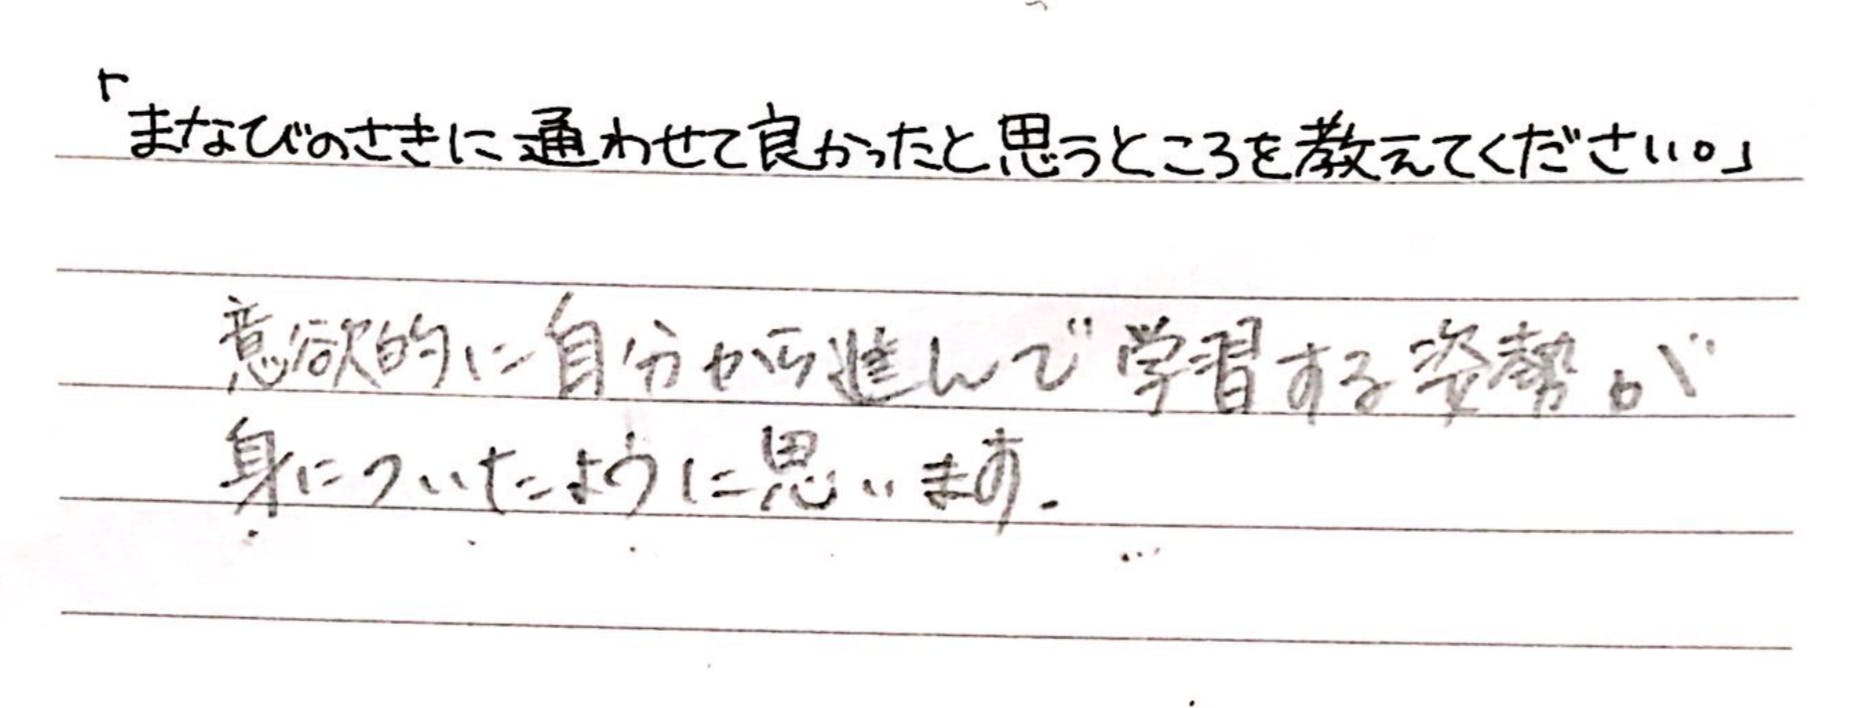 「まなびのさきに通わせて良かったと思うところを教えてください。」
意欲的に自分から進んで学習する姿勢が
身についたように思います.